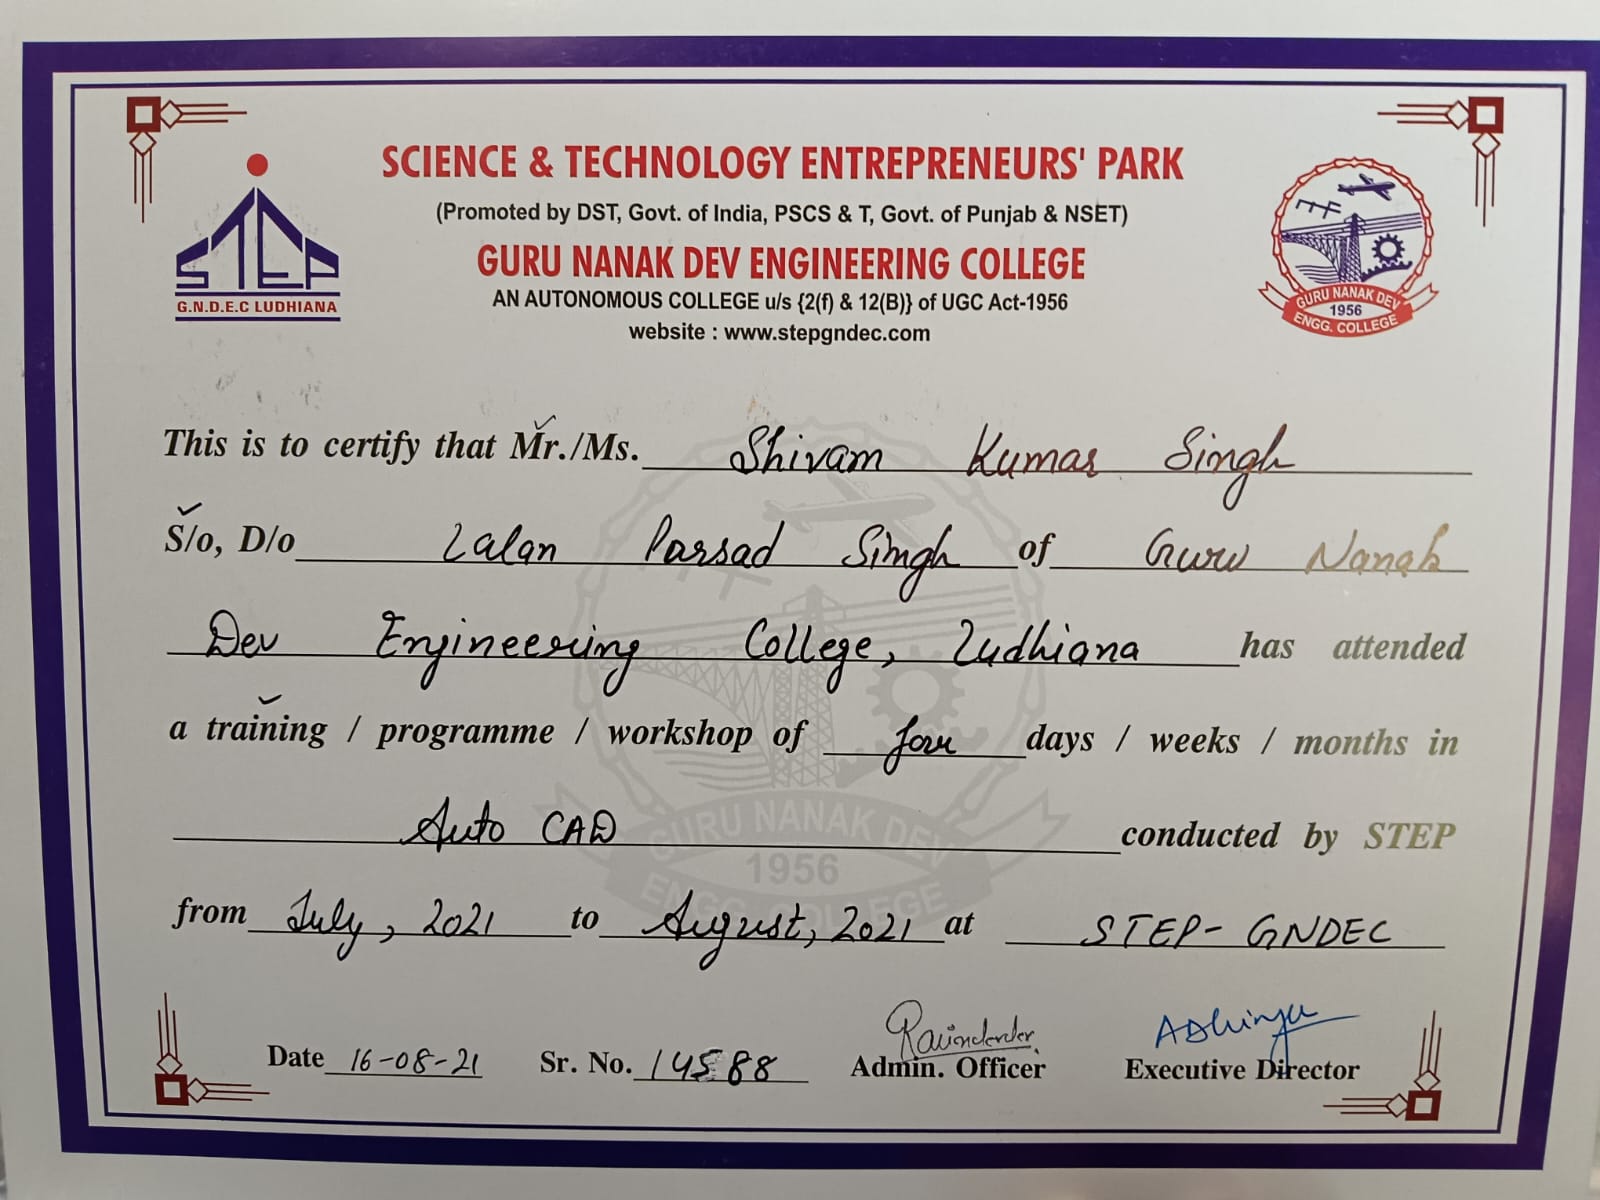 SCIENCE & TECHNOLOGY ENTREPRENEURS' PARK
(Promoted by DST, Govt. of India, PSCS & T, Govt. of Punjab & NSET)
GURU NANAK DEV ENGINEERING COLLEGE
AN AUTONOMOUS COLLEGE u/s {2(f) & 12(B)} of UGC Act-1956
website : www.stepgndec.com
STEP
G.N.D.E.C LUDHIANA
GURU NANAK DEV
1956
ENGG. COLLEGE
This is to certify that Mr./Ms. Shivam Kumar Singh
S/o, D/o Lalan Parsad Singh of Guru Nanak
Dev Engineering College, Ludhiana has attended
a training / programme / workshop of four days / weeks / months in
Auto CAD conducted by STEP
from July, 2021 to August, 2021 at STEP- GNDEC
GURU NANAK DEV
1956
ENGG. COLLEGE
Date 16-08-21 Sr. No. 14588 Admin. Officer Executive Director